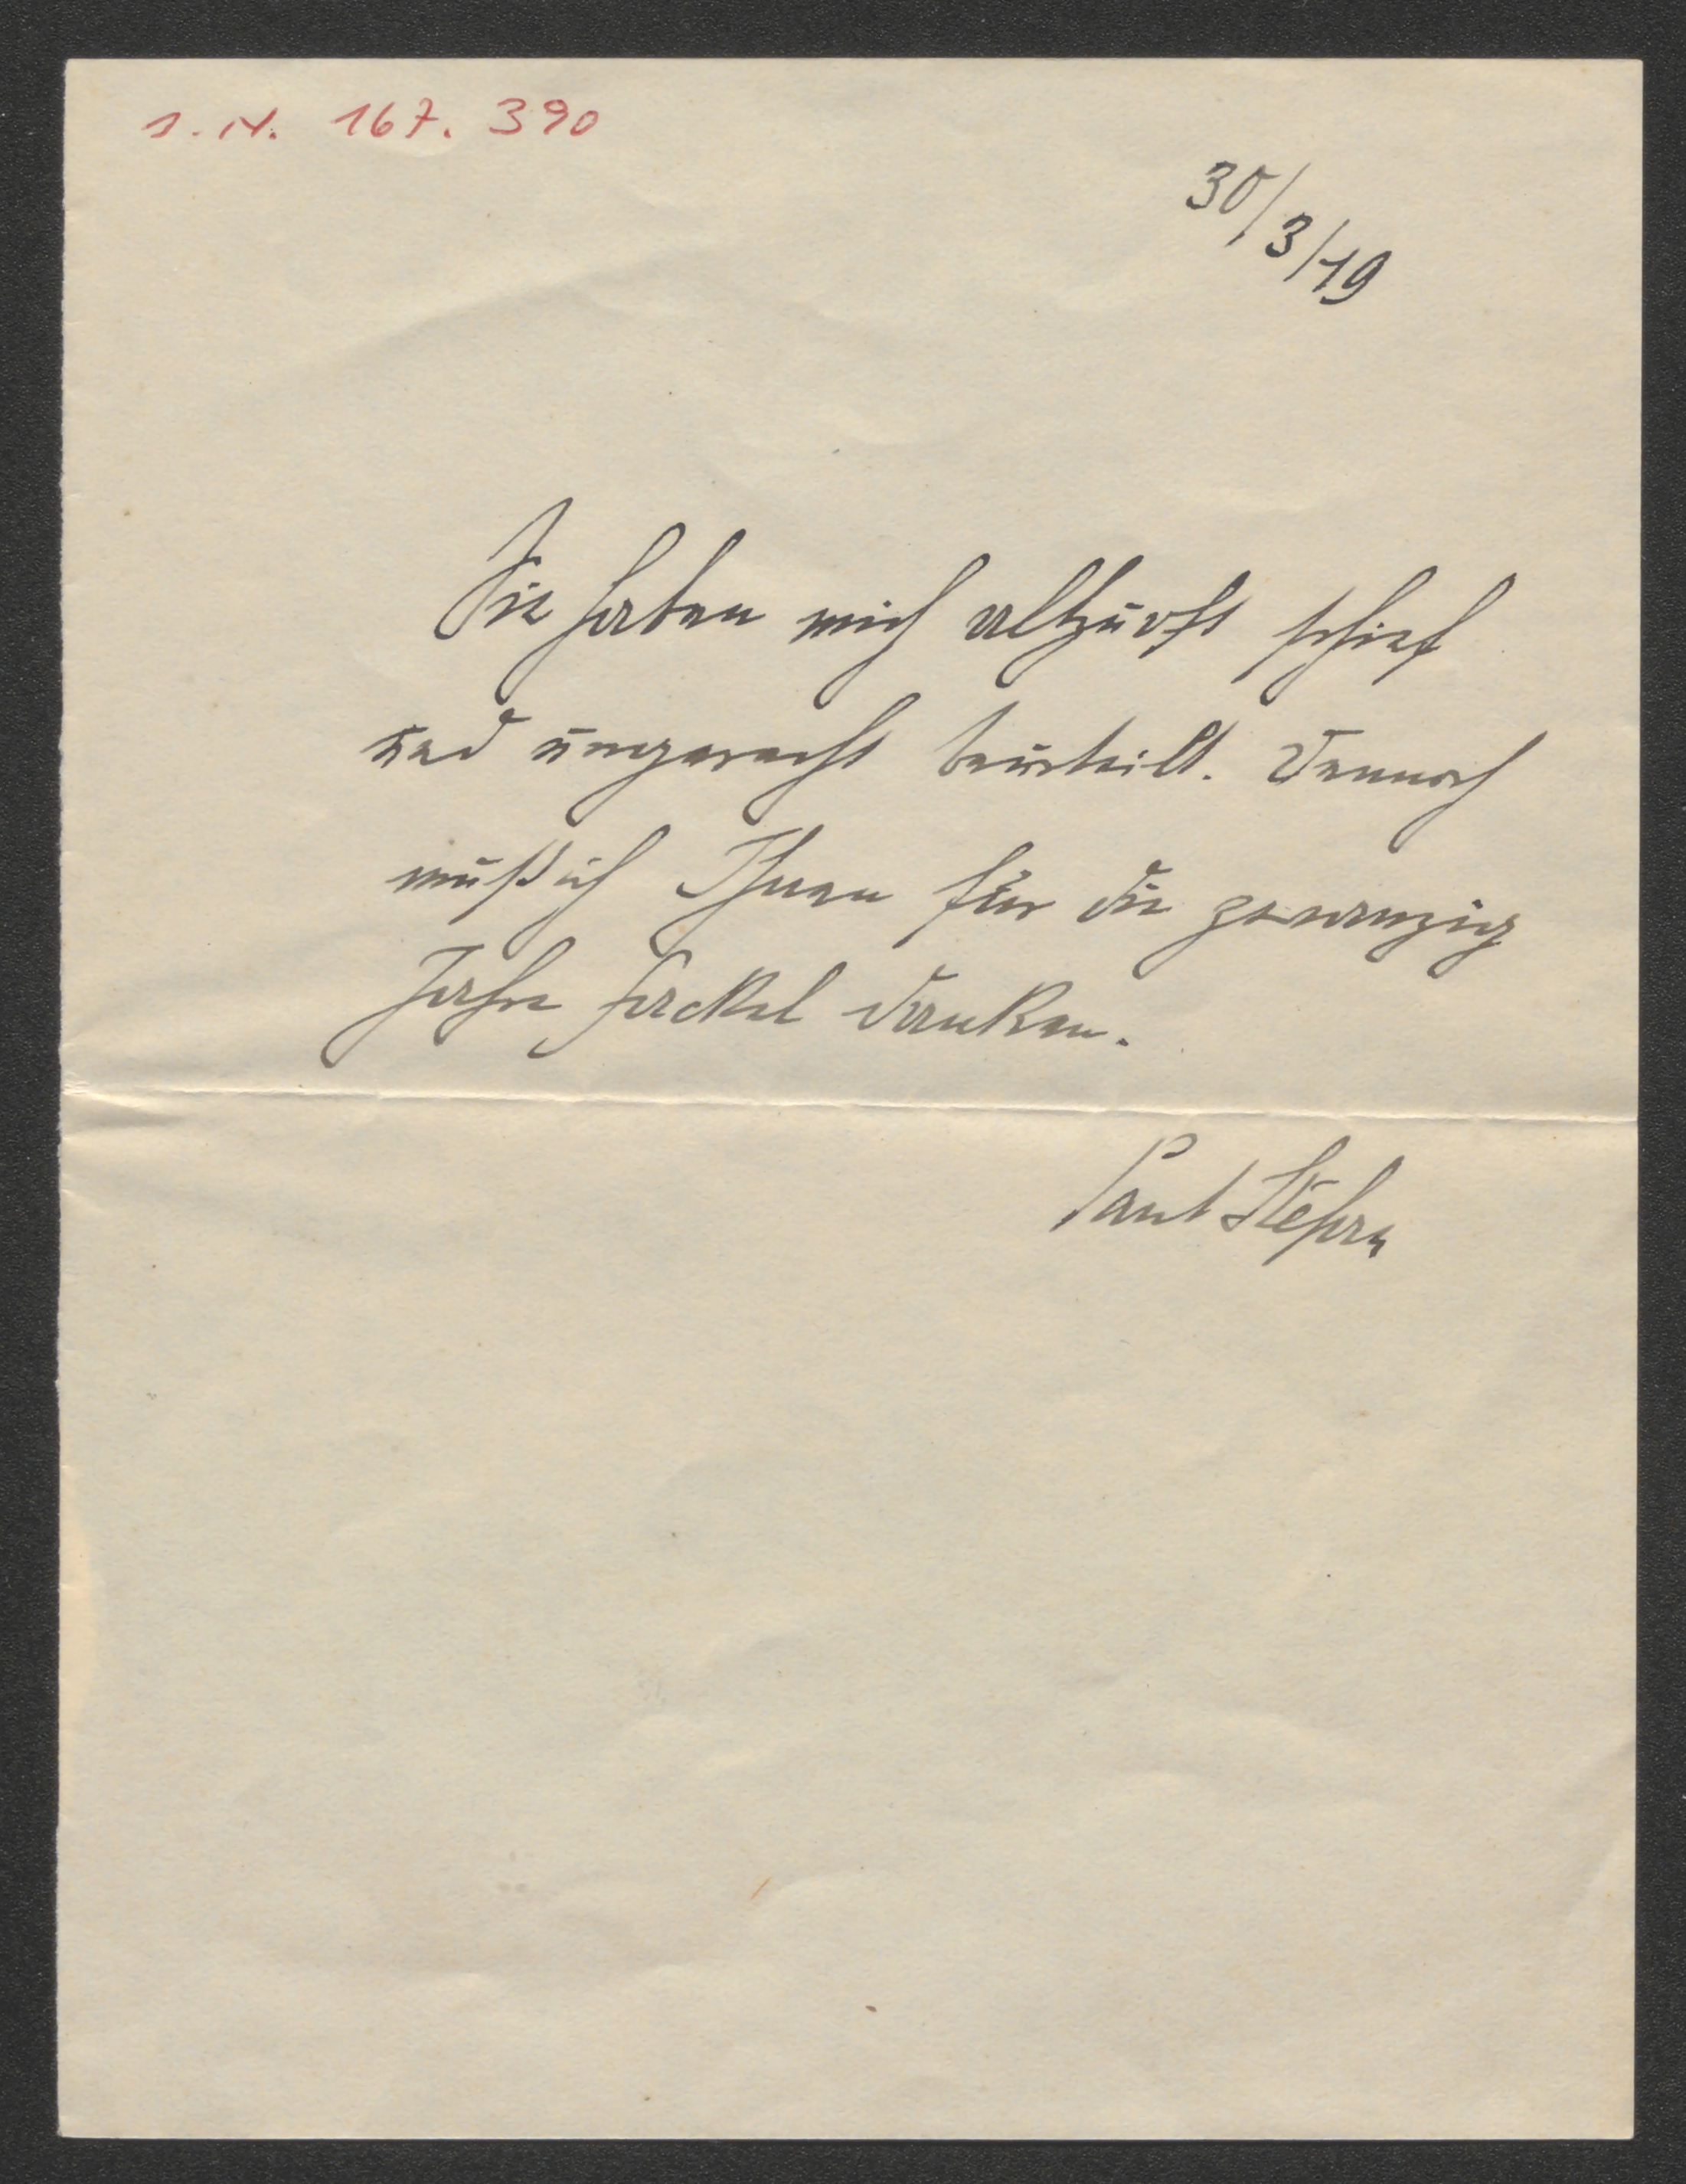 I.N. 167.390
30/3/19
Sie haben mich allzuoft schief
und ungerecht beurteilt. Dennoch
muß ich Ihnen für die zwanzig
Jahre Fackel danken.
Paul Stefan